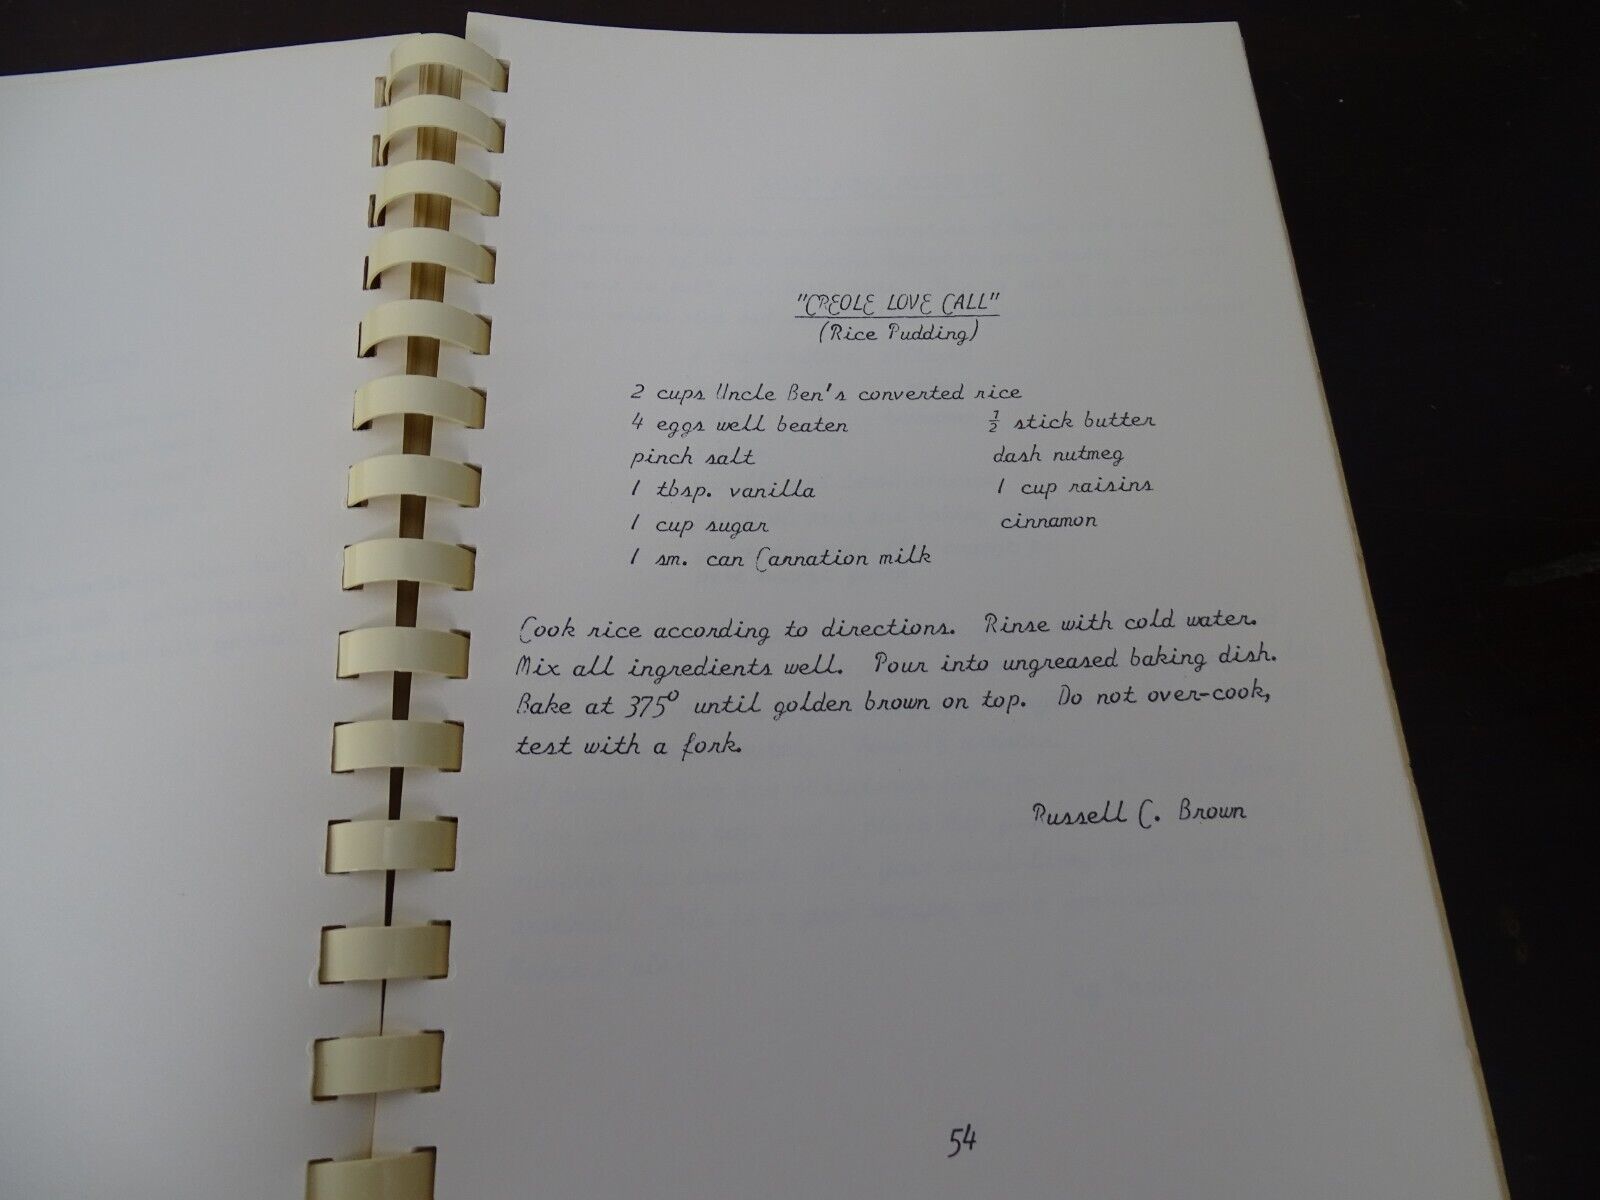 "CREOLE LOVE CALL"
(Rice Pudding)
2 cups Uncle Ben's converted rice
4 eggs well beaten ½ stick butter
pinch salt dash nutmeg
1 tbsp. vanilla 1 cup raisins
1 cup sugar cinnamon
1 sm. can Carnation milk
Cook rice according to directions. Rinse with cold water.
Mix all ingredients well. Pour into ungreased baking dish.
Bake at 375° until golden brown on top. Do not over-cook,
test with a fork.
Russell C. Brown
54